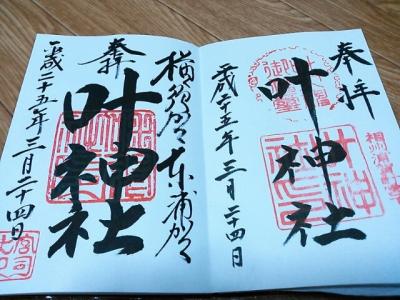 奉拝
叶神社
平成二十五年三月二十四日
横須賀東浦賀
奉拝
叶神社
平成二十五年三月二十四日